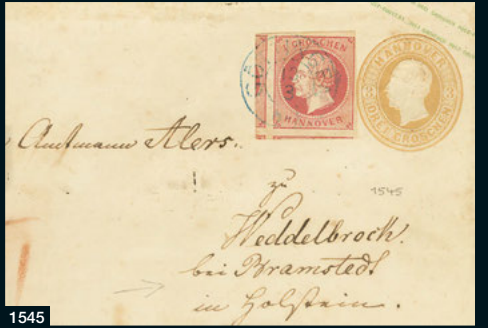 1 GROSCHEN
HANNOVER
HANNOVER
DREI GROSCHEN
Amtmann Alers.
zu
1545
Weddelbrock.
bei Bramstedt
in Holstein.
1545